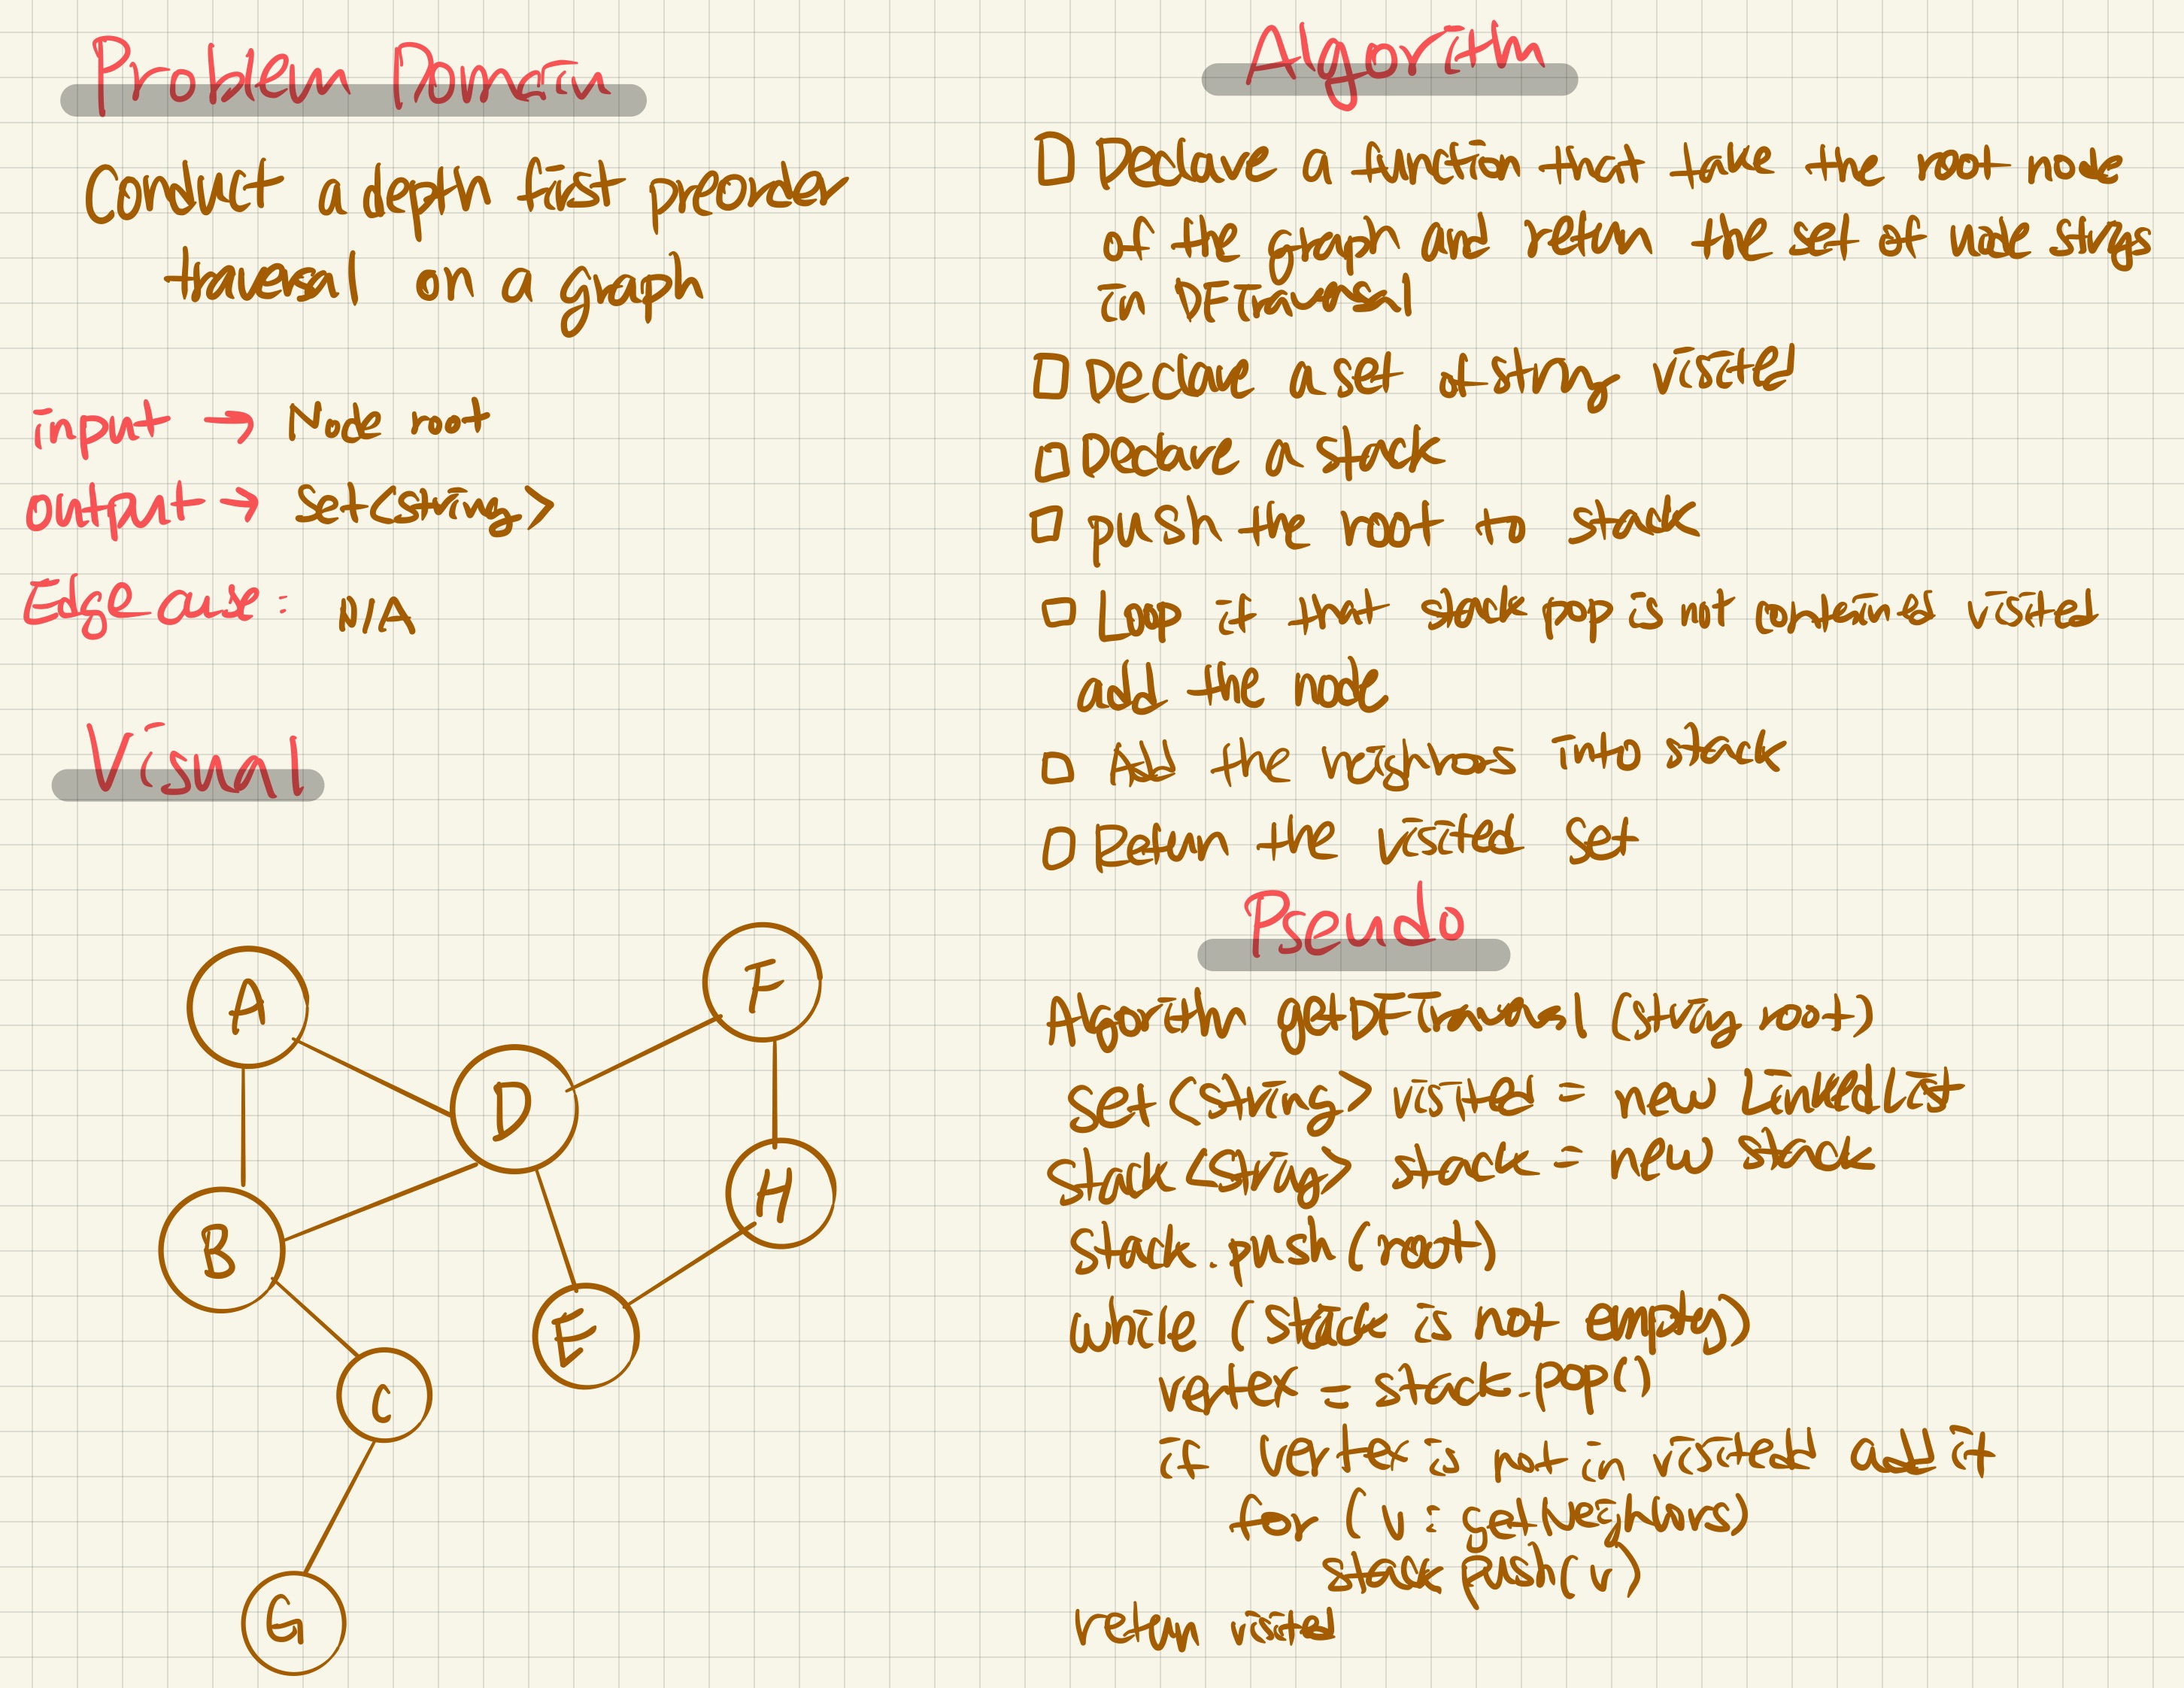 Problem Domain
Conduct a depth first preorder
traversal on a graph
input → Node root
output → Set<string>
Edge case: N/A
Visual
A
F
D
H
B
E
C
G
Algorithm
Declare a function that take the root node
of the graph and return the set of node strings
in DFTraversal
Declare a set of string visited
Declare a stack
push the root to stack
Loop if that stack pop is not contained visited
add the node
Add the neighbors into stack
Return the visited set
Pseudo
Algorithm getDFTraversal (string root)
Set<string> visited = new LinkedList
Stack <String> stack = new stack
stack.push(root)
while (stack is not empty)
vertex = stack.pop()
if vertex is not in visited add it
for (v: getNeighbors)
stack push(v)
return visited